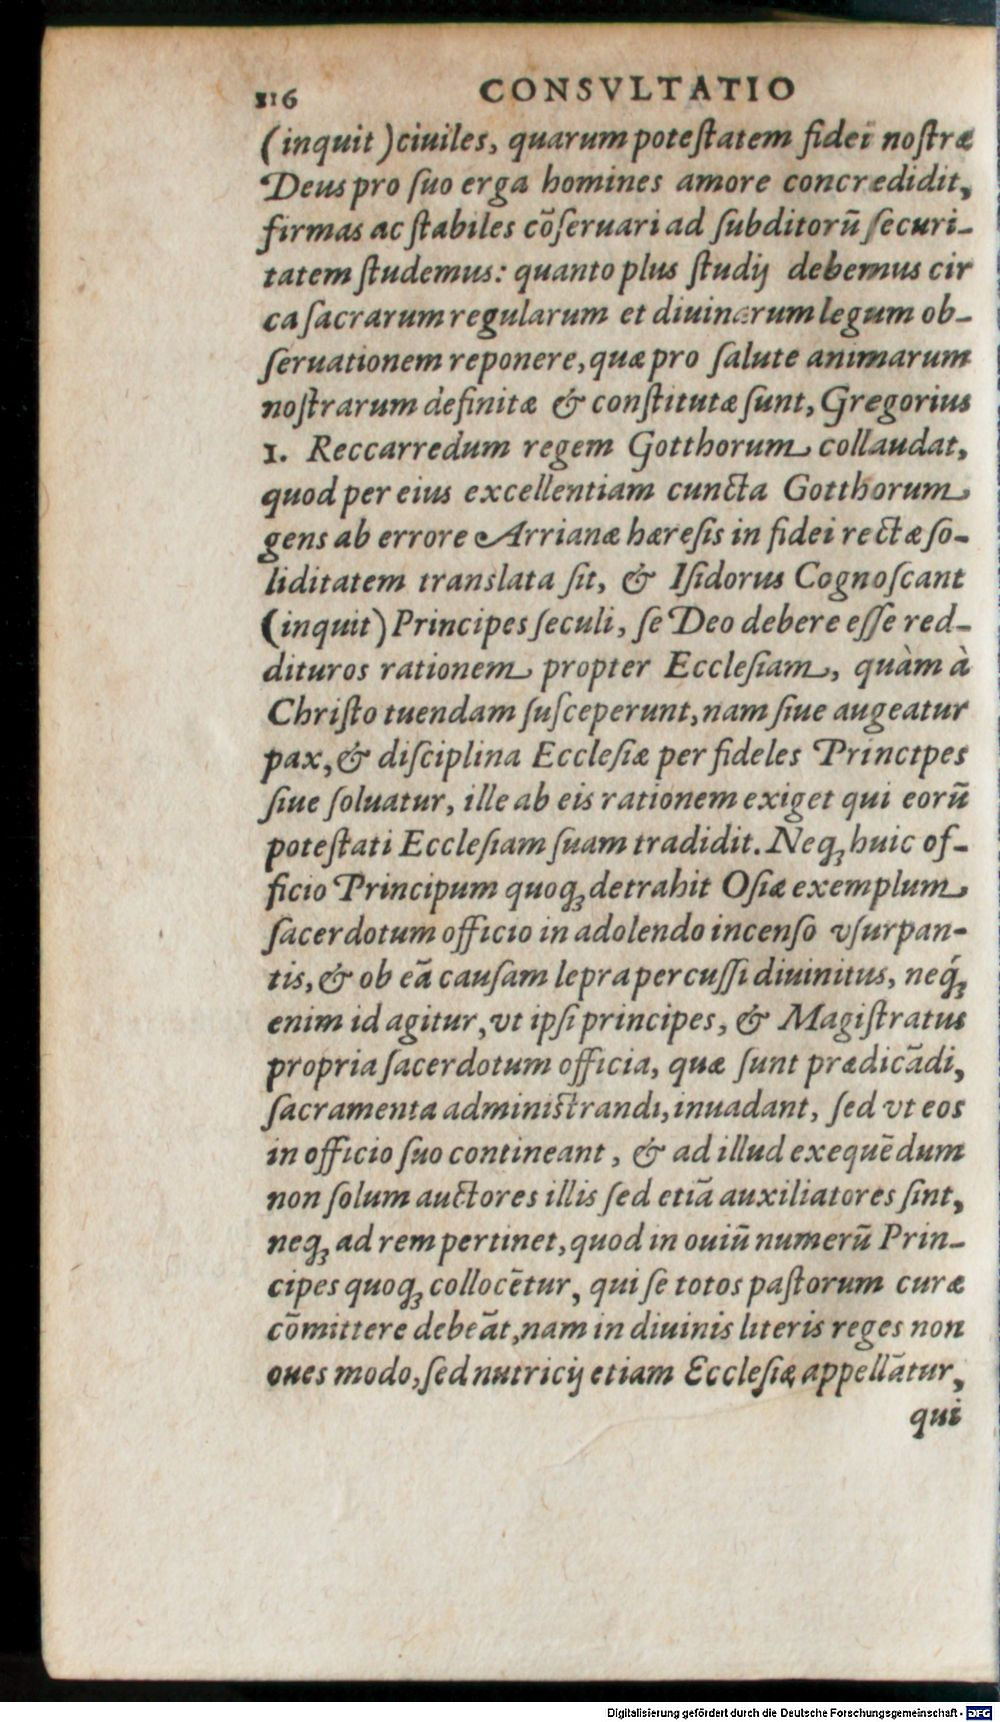 116 CONSVLTATIO
(inquit) ciuiles, quarum poteſtatem fidei noſtræ
Deus pro ſuo erga homines amore concredidit,
firmas ac ſtabiles cõſeruari ad ſubditorũ ſecuri-
tatem ſtudemus: quanto plus ſtudij debemus cir
ca ſacrarum regularum et diuinarum legum ob-
ſeruationem reponere, quæ pro ſalute animarum
noſtrarum definitæ & conſtitutæ ſunt, Gregorius
1. Reccarredum regem Gotthorum collaudat,
quod per eius excellentiam cuncta Gotthorum
gens ab errore Arrianæ hæreſis in fidei rectæ ſo-
liditatem translata ſit, & Iſidorus Cognoſcant
(inquit) Principes ſeculi, ſe Deo debere eſſe red-
dituros rationem propter Eccleſiam, quàm à
Chriſto tuendam ſuſceperunt, nam ſiue augeatur
pax, & diſciplina Eccleſiæ per fideles Principes
ſiue ſoluatur, ille ab eis rationem exiget qui eorũ
poteſtati Eccleſiam ſuam tradidit. Neq; huic of-
ficio Principum quoq; detrahit Oſiæ exemplum
ſacerdotum officio in adolendo incenſo vſurpan-
tis, & ob eã cauſam lepra percuſſi diuinitus, neq́;
enim id agitur, vt ipſi principes, & Magiſtratus
propria ſacerdotum officia, quæ ſunt prædicãdi,
ſacramenta adminiſtrandi, inuadant, ſed vt eos
in officio ſuo contineant, & ad illud exequẽdum
non ſolum auctores illis ſed etiã auxiliatores ſint,
neq; ad rem pertinet, quod in ouiũ numerũ Prin-
cipes quoq; collocẽtur, qui ſe totos paſtorum curæ
cõmittere debeãt, nam in diuinis literis reges non
oues modo, ſed nutricij etiam Eccleſiæ appellãtur,
qui
Digitalisierung gefördert durch die Deutsche Forschungsgemeinschaft - DFG